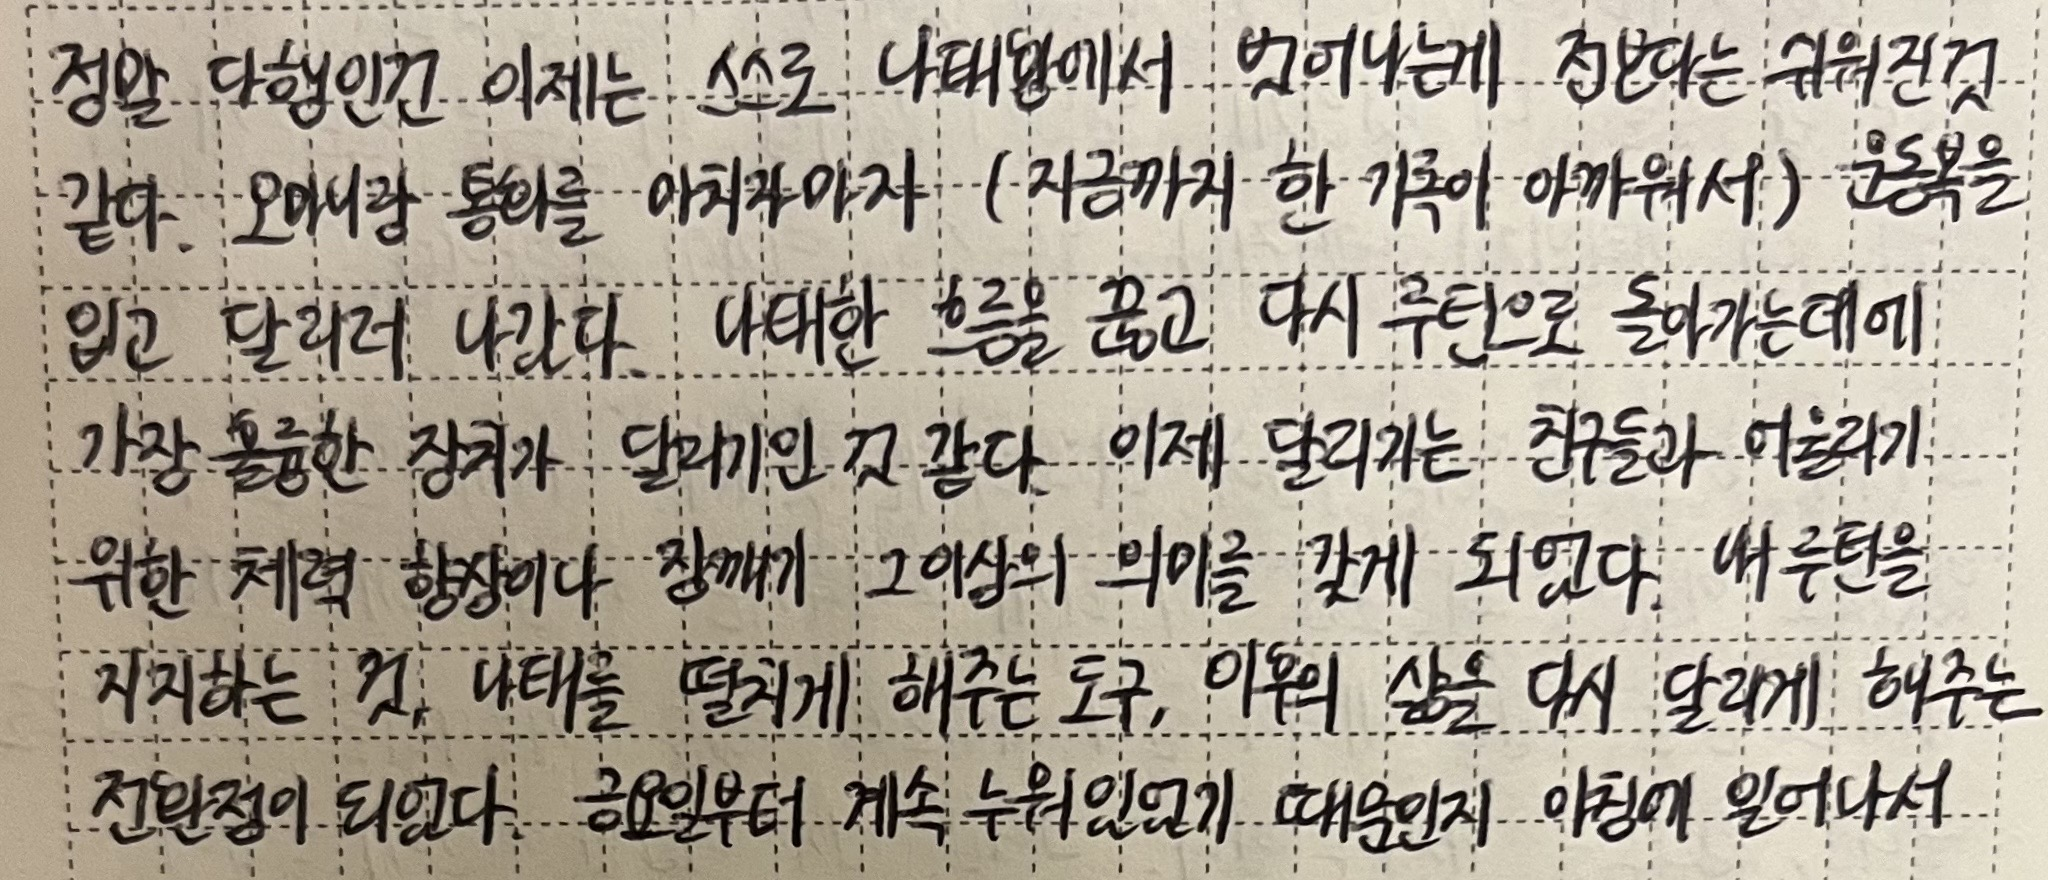 정말 다행인건 이제는 스스로 나태함에서 벗어나는게 전보다는 쉬워진것
같다. 오마니랑 통화를 마치자마자 (지금까지 한 기록이 아까워서) 운동복을
입고 달리러 나갔다. 나태한 흐름을 끊고 다시 루틴으로 돌아가는데에
가장 훌륭한 장치가 달리기인 것 같다. 이제 달리기는 친구들과 어울리기
위한 체력 향상이다 장깨기 그 이상의 의미를 갖게 되었다. 내 루틴을
지지하는 것, 나태를 떨치게 해주는 도구, 이후의 삶을 다시 달리게 해주는
전환점이 되었다. 금요일부터 계속 누워있었기 때문인지 아침에 일어나서